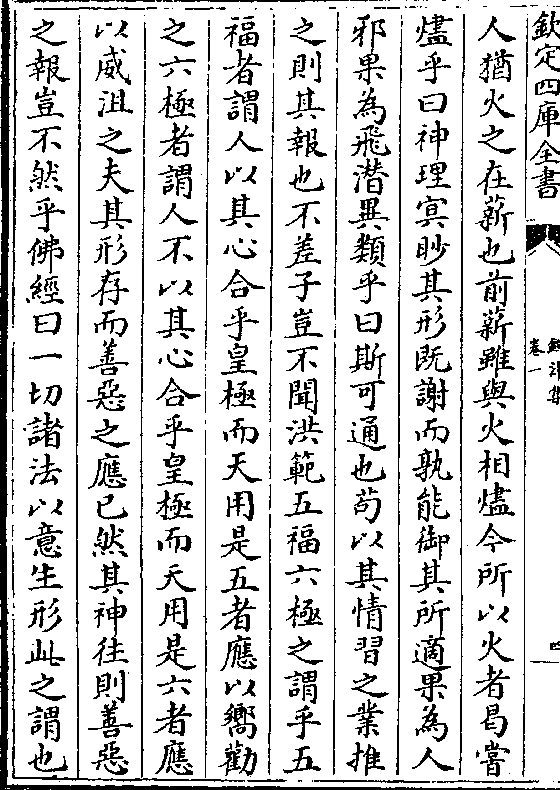 欽定四庫全書
卷一
人猶火之在薪也前薪雖與火相燼今所以火者曷嘗
燼乎曰神理冥眇其形既謝而孰能御其所適果為人
邪果為飛潛異類乎曰斯可通也茍以其情習之業推
之則其報也不差子豈不聞洪範五福六極之謂乎五
福者謂人以其心合乎皇極而天用是五者應以嚮勸
之六極者謂人不以其心合乎皇極而天用是六者應
以威沮之夫其形存而善惡之應已然其神往則善惡
之報豈不然乎佛經曰一切諸法以意生形此之謂也